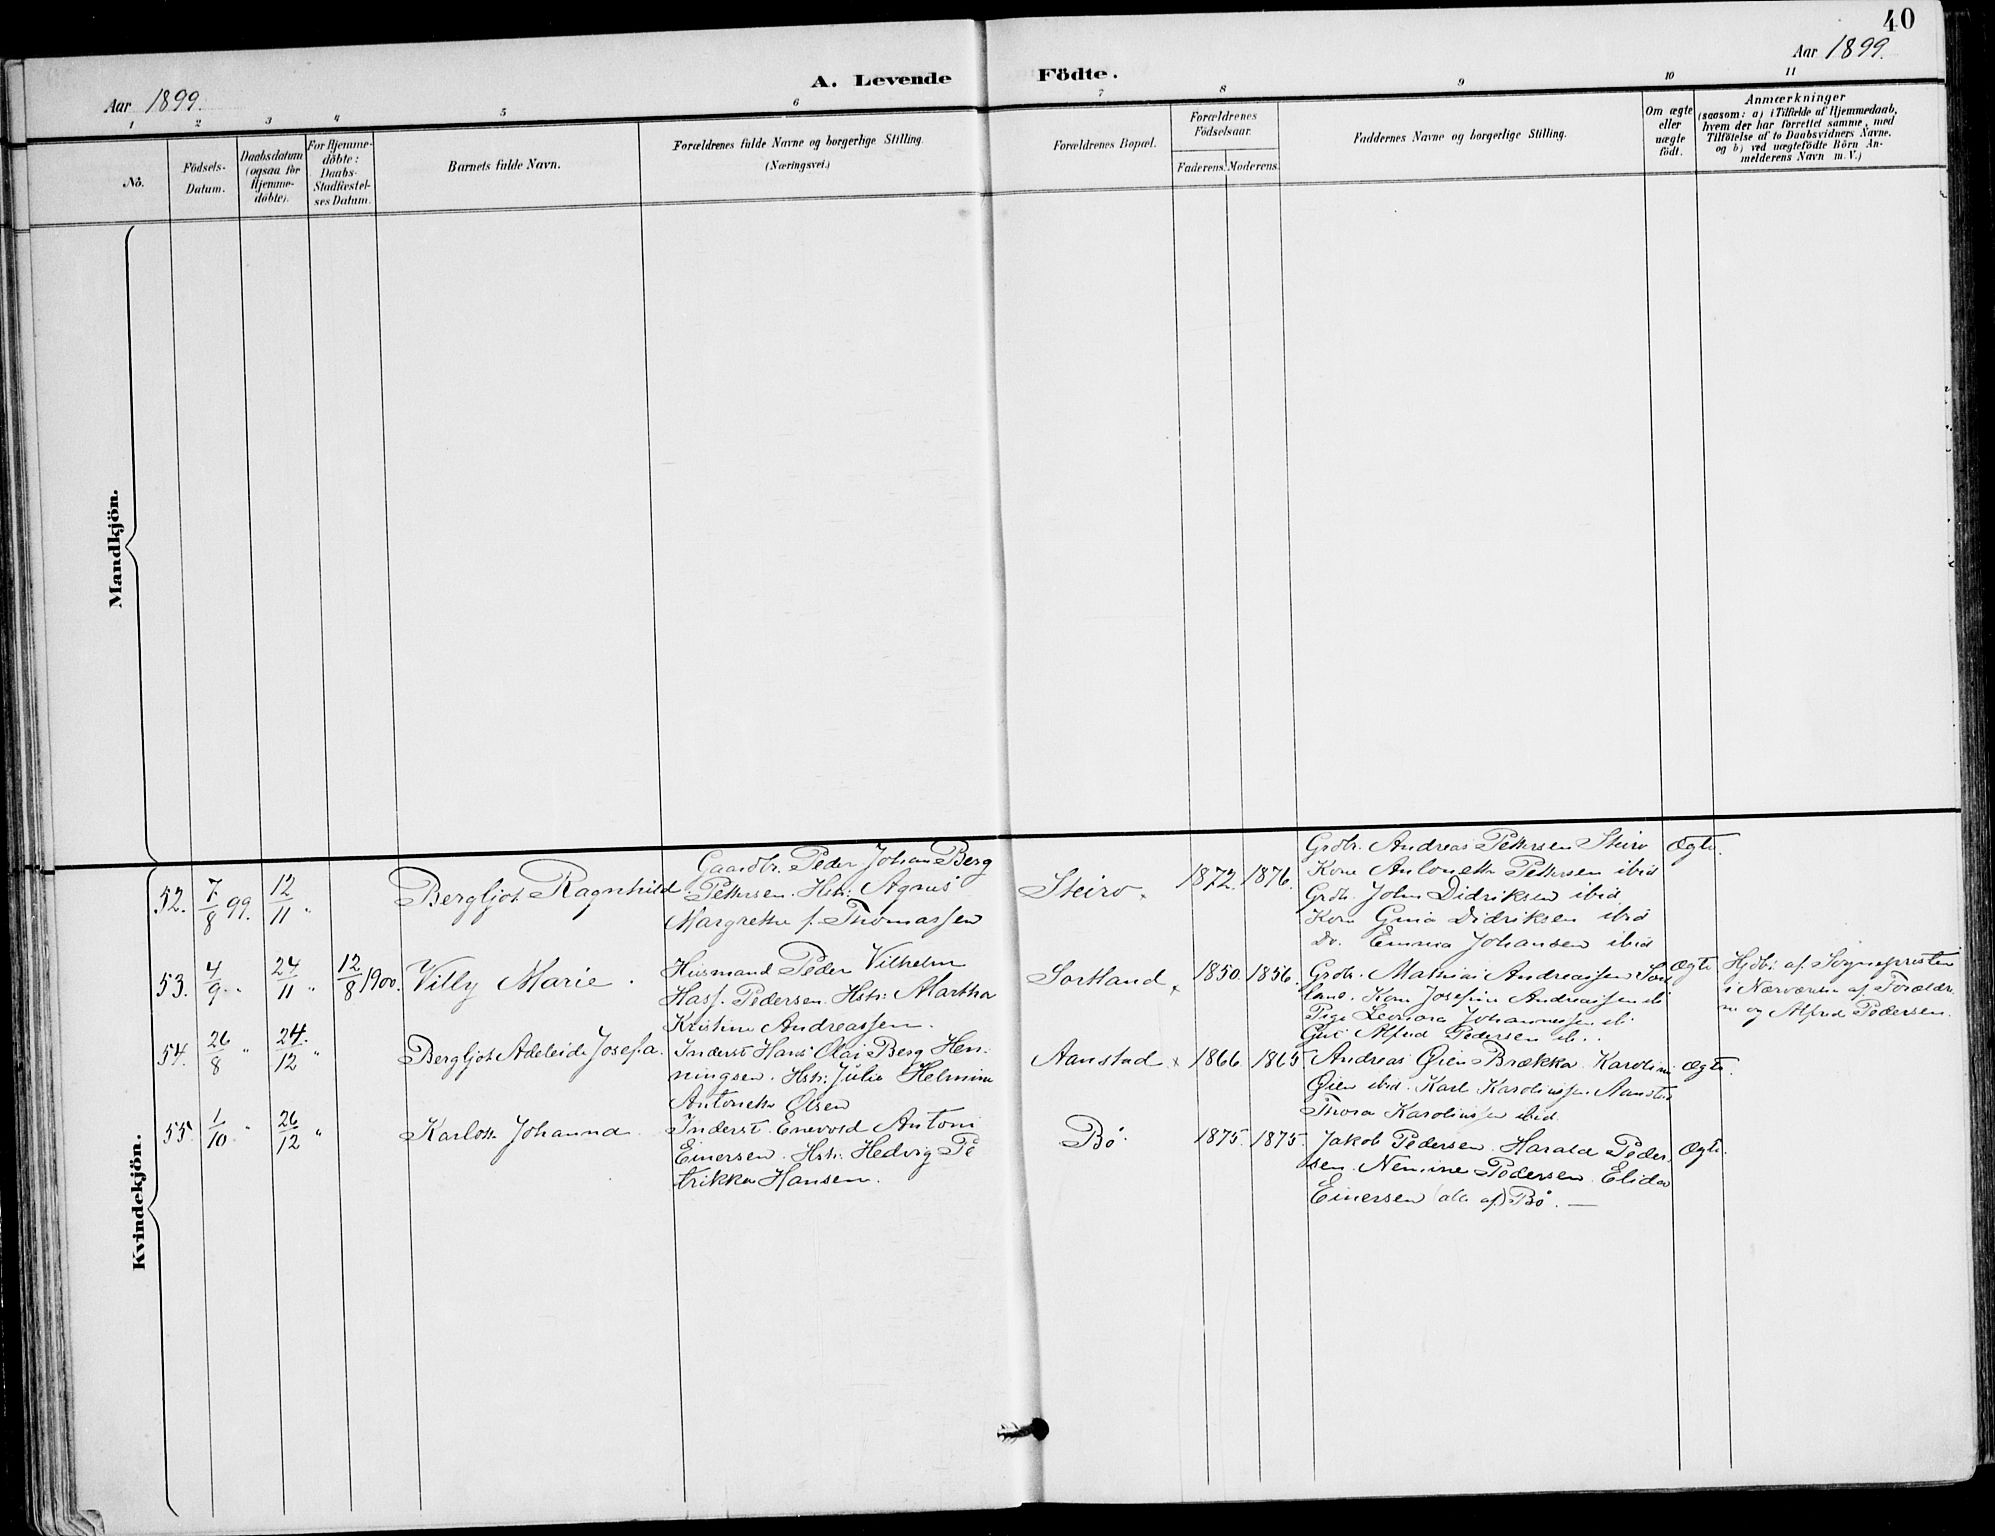 40
Aar 1899.
A. Levende Födte.
Aar 1899.
1 2 3 4 5 6 7 8 9 10 11
No.
Födsels-
Datum.
Daabsdatum
(ogsaa for
Hjemme-
døbte).
For Hjemme-
døbte:
Daabs-
Stadfæstel-
ses Datum.
Barnets fulde Navn.
Forældrenes fulde Navne og borgerlige Stilling.
(Næringsvei.)
Forældrenes Bopæl.
Forældrenes
Födselsaar.
Faderens. Moderens.
Faddernes Navne og borgerlige Stilling.
Om ægte
eller
uægte
født.
Anmærkninger
(saasom: a) i Tilfælde af Hjemmedaab,
hvem der har forrettet samme, med
Tilföielse af to Daabsvidners Navne.
og b) ved uægtefödte Börn An-
melderens Navn m. V.)
Mandkjön.
Kvindekjön.
52. 7/8 99. 12/11 "
Bergljot Ragnhild
Gaardbr. Peder Johan Berg
Pettersen. Hstr: Agnes
Margrethe f. Thomassen
Steiro.
1872. 1876.
Grdbr. Andreas Pettersen Steiro
Kone Antonette Pettersen ibid
Grdb. John Didriksen ibid
Kone Gina Didriksen ibid
Do. Emma Johansen ibid
Ægte.
53. 4/9 " 24/11 " 12/8 1900.
Villy Marie.
Husmand Peder Vilhelm
Hass Pedersen. Hstr: Martha
Kristine Andreassen.
Sortland
1850. 1856.
Grdbr. Mathias Andreassen Sort
land. Kone Josefine Andreassen ib
Pige Leonora Johannessen ib.
Gut Alfred Pedersen ib.
Ægte
Hjdbt af Sognepresten
i Nærværelse af Forældre
ne og Alfred Pedersen.
54. 26/8 " 24/12 "
Bergljot Adeleide Josefa.
Inderst Hans Olai Berg Hen-
ningsen. Hstr: Julie Helmine
Antonette Olsen
Aanstad
1866. 1865
Andreas Øien Brækka. Karoline
Øien ibid. Karl Karoliussen Aanstad
Thora Karoliussen ibid.
Ægte.
55. 1/10 " 26/12 "
Karlotte Johanna
Inderst Enevold Antoni
Einersen. Hstr: Hedvig Pe
trikke Hansen.
Bø.
1875. 1875.
Jakob Pedersen. Harald Peder-
sen. Nemine Pedersen. Elida
Einersen (alle af) Bø. —
Ægte.